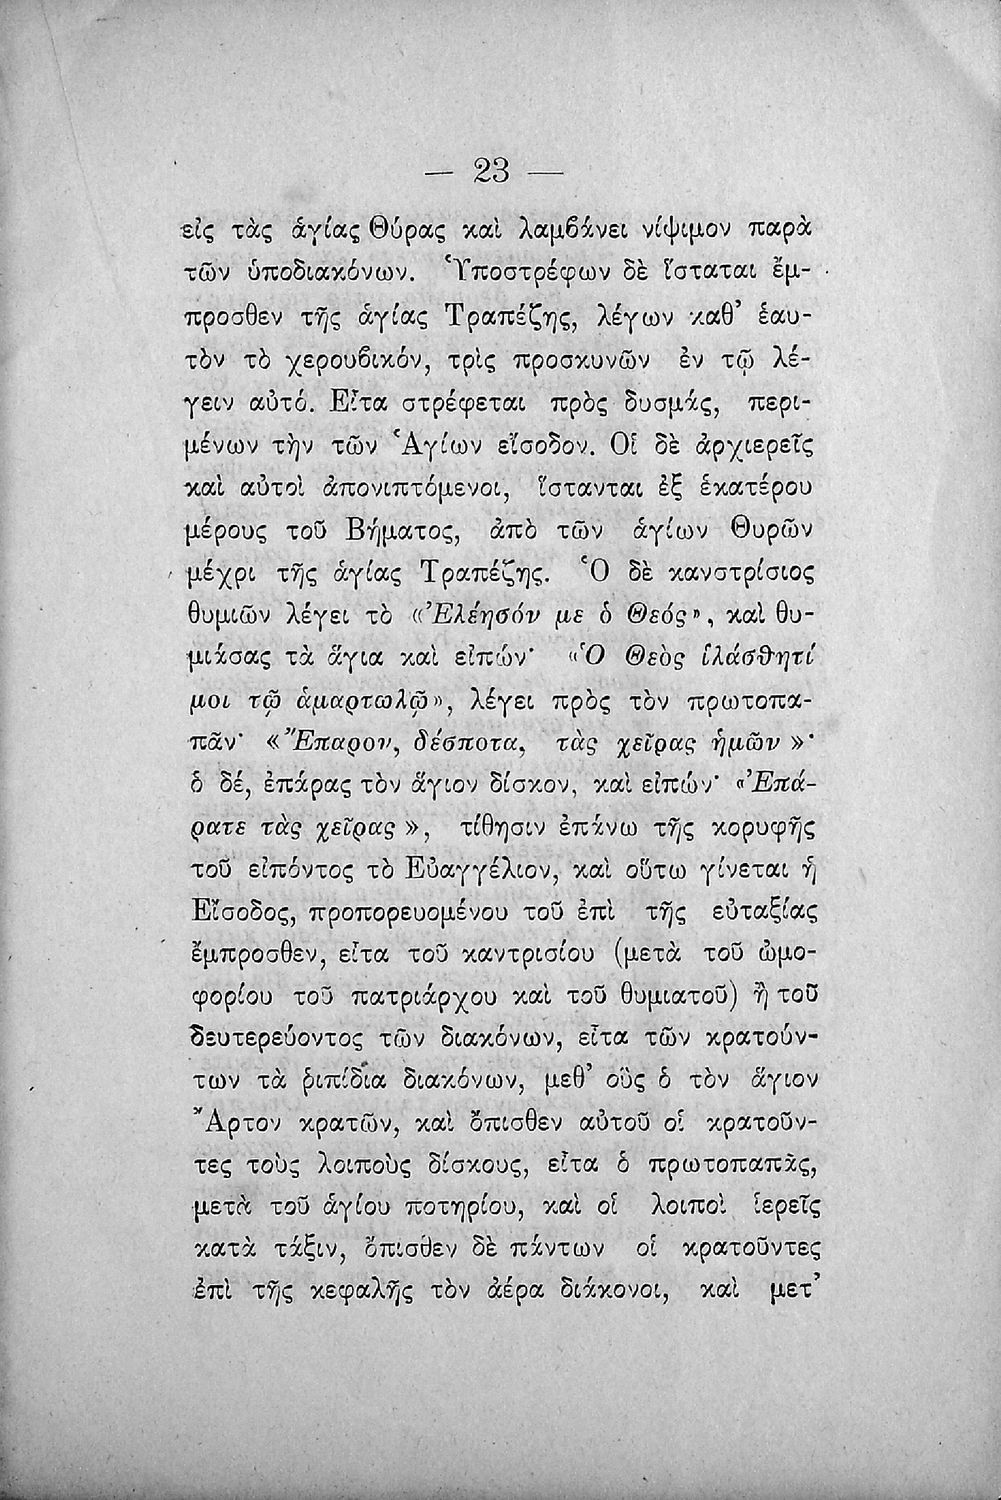 — 23 —
εἰς τὰς ἁγίας Θύρας καὶ λαμβάνει νίψιμον παρὰ
τῶν ὑποδιακόνων. Ὑποστρέφων δὲ ἵσταται ἔμ-
προσθεν τῆς ἁγίας Τραπέζης, λέγων καθ’ ἑαυ-
τὸν τὸ χερουβικόν, τρὶς προσκυνῶν ἐν τῷ λέ-
γειν αὐτό. Εἶτα στρέφεται πρὸς δυσμάς, περι-
μένων τὴν τῶν Ἁγίων εἴσοδον. Οἱ δὲ ἀρχιερεῖς
καὶ αὐτοὶ ἀπονιπτόμενοι, ἵστανται ἐξ ἑκατέρου
μέρους τοῦ Βήματος, ἀπὸ τῶν ἁγίων Θυρῶν
μέχρι τῆς ἁγίας Τραπέζης. Ὁ δὲ κανστρίσιος
θυμιῶν λέγει τὸ «Ἐλέησόν με ὁ Θεός», καὶ θυ-
μιάσας τὰ ἅγια καὶ εἰπών· «Ὁ Θεὸς ἱλάσθητί
μοι τῷ ἁμαρτωλῷ», λέγει πρὸς τὸν πρωτοπα-
πᾶν· «Ἔπαρον, δέσποτα, τὰς χεῖρας ἡμῶν»·
ὁ δέ, ἐπάρας τὸν ἅγιον δίσκον, καὶ εἰπών· «Ἐπά-
ρατε τὰς χεῖρας», τίθησιν ἐπάνω τῆς κορυφῆς
τοῦ εἰπόντος τὸ Εὐαγγέλιον, καὶ οὕτω γίνεται ἡ
Εἴσοδος, προπορευομένου τοῦ ἐπὶ τῆς εὐταξίας
ἔμπροσθεν, εἶτα τοῦ καντρισίου (μετὰ τοῦ ὠμο-
φορίου τοῦ πατριάρχου καὶ τοῦ θυμιατοῦ) ἢ τοῦ
δευτερεύοντος τῶν διακόνων, εἶτα τῶν κρατούν-
των τὰ ῥιπίδια διακόνων, μεθ’ οὓς ὁ τὸν ἅγιον
Ἄρτον κρατῶν, καὶ ὄπισθεν αὐτοῦ οἱ κρατοῦν-
τες τοὺς λοιποὺς δίσκους, εἶτα ὁ πρωτοπαπᾶς,
μετὰ τοῦ ἁγίου ποτηρίου, καὶ οἱ λοιποὶ ἱερεῖς
κατὰ τάξιν, ὄπισθεν δὲ πάντων οἱ κρατοῦντες
ἐπὶ τῆς κεφαλῆς τὸν ἀέρα διάκονοι, καὶ μετ’